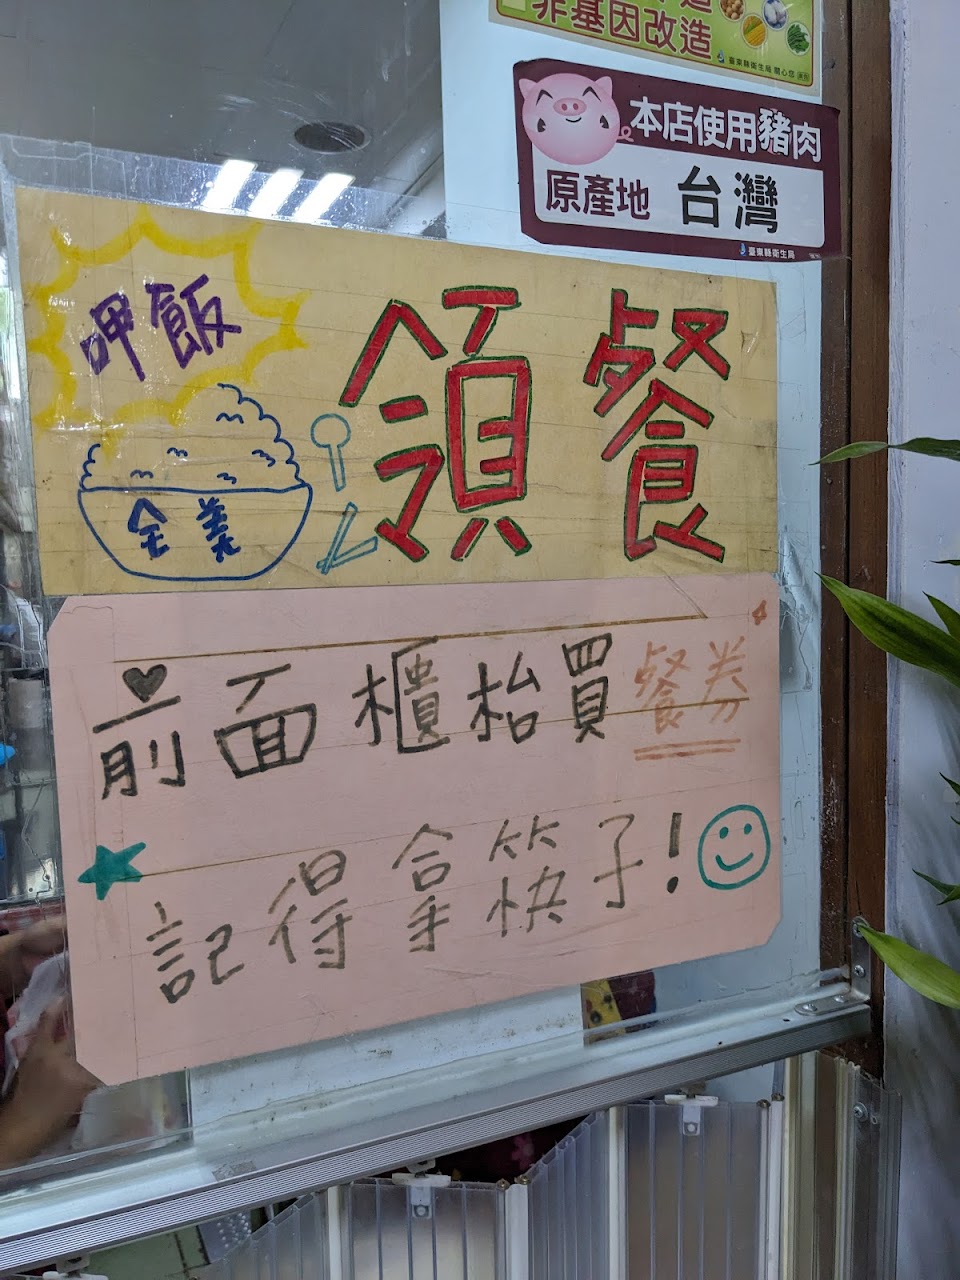 非基因改造
臺東縣衛生局 關心您
本店使用豬肉
原產地 台灣
臺東縣衛生局
呷飯
全美
領餐
前面櫃枱買餐券
記得拿筷子！